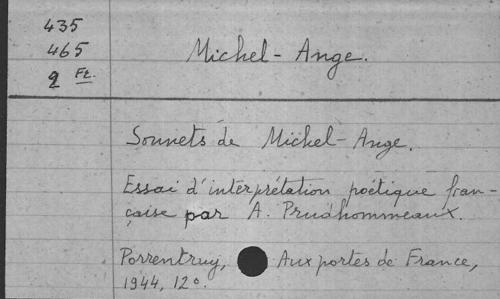 435
465
2 Fr.
Michel-Ange.
Sonnets de Michel-Ange.
Essai d'interprétation poétique fran-
çaise par A. Prudhommeaux.
Porrentruy, Aux portes de France,
1944, 12°.